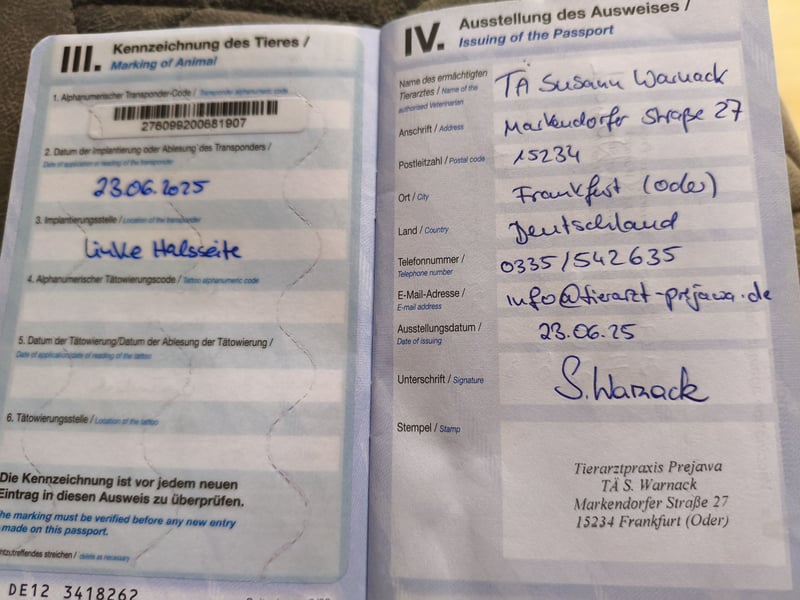 III. Kennzeichnung des Tieres /
Marking of Animal
1. Alphanumerischer Transponder-Code / Transponder alphanumeric code
276099200681907
2. Datum der Implantierung oder Ablesung des Transponders /
Date of application or reading of the transponder
23.06.2025
3. Implantierungsstelle / Location of the transponder
Linke Halsseite
4. Alphanumerischer Tätowierungscode / Tattoo alphanumeric code
5. Datum der Tätowierung/Datum der Ablesung der Tätowierung /
Date of application/date of reading of the tattoo
6. Tätowierungsstelle / Location of the tattoo
Die Kennzeichnung ist vor jedem neuen
Eintrag in diesen Ausweis zu überprüfen.
The marking must be verified before any new entry
made on this passport.
streichen / delete as necessary
DE12 3418262
IV. Ausstellung des Ausweises /
Issuing of the Passport
Name des ermächtigten
Tierarztes / Name of the
authorised Veterinarian
TÄ Susann Warnack
Anschrift / Address
Markendorfer Straße 27
Postleitzahl / Postal code
15234
Ort / City
Frankfurt (Oder)
Land / Country
Deutschland
Telefonnummer /
Telephone number
0335/542635
E-Mail-Adresse /
E-mail address
info@tierarzt-prejawa.de
Ausstellungsdatum /
Date of issuing
23.06.25
Unterschrift / Signature
S. Warnack
Stempel / Stamp
Tierarztpraxis Prejawa
TÄ S. Warnack
Markendorfer Straße 27
15234 Frankfurt (Oder)